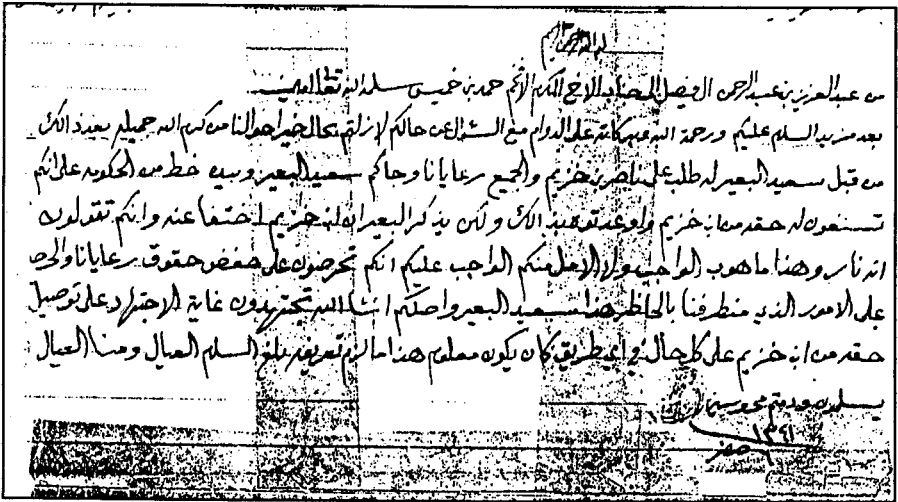 بسم الله الرحمن الرحيم
من عبد العزيز بن عبد الرحمن ال فيصل الى جناب الاخ المكرم الافخم حمد بن خميس سلمه الله تعالى امين
بعد مزيد السلم عليكم ورحمة الله وبركاته على الدوام مع السئوال عن حالكم لازلتم بحال خير احوالنا من كرم الله جميله بعد ذالك
من قبل سعيد البعير له طلب على ناصر بن خزيم والجميع رعايانا وجاكم سعيد البعير وبيده خط من الحكومه على انكم
له حقه من ابن خزيم ذالك ولكن يذكر البعير ان ابن خزيم اختفا عنه وانكم تقولون
انه ناس وهذا ما هوب الواجب ولا الامل منكم الواجب عليكم انكم تحرصون على حفض حقوق رعايانا والحرص
على الامور الذي منطرفنا بالحاظر هذا سعيد البعير واصلكم انشا الله تجتهدون غاية الاجتهاد على توصيل
حقه من ابن خزيم على كل حال في اي طريق كان يكون معلوم هذا مالزم تعريفه بلغ السلم العيال ومنا العيال
يسلمون ودمتم محروسين
١٣٤١
صفر